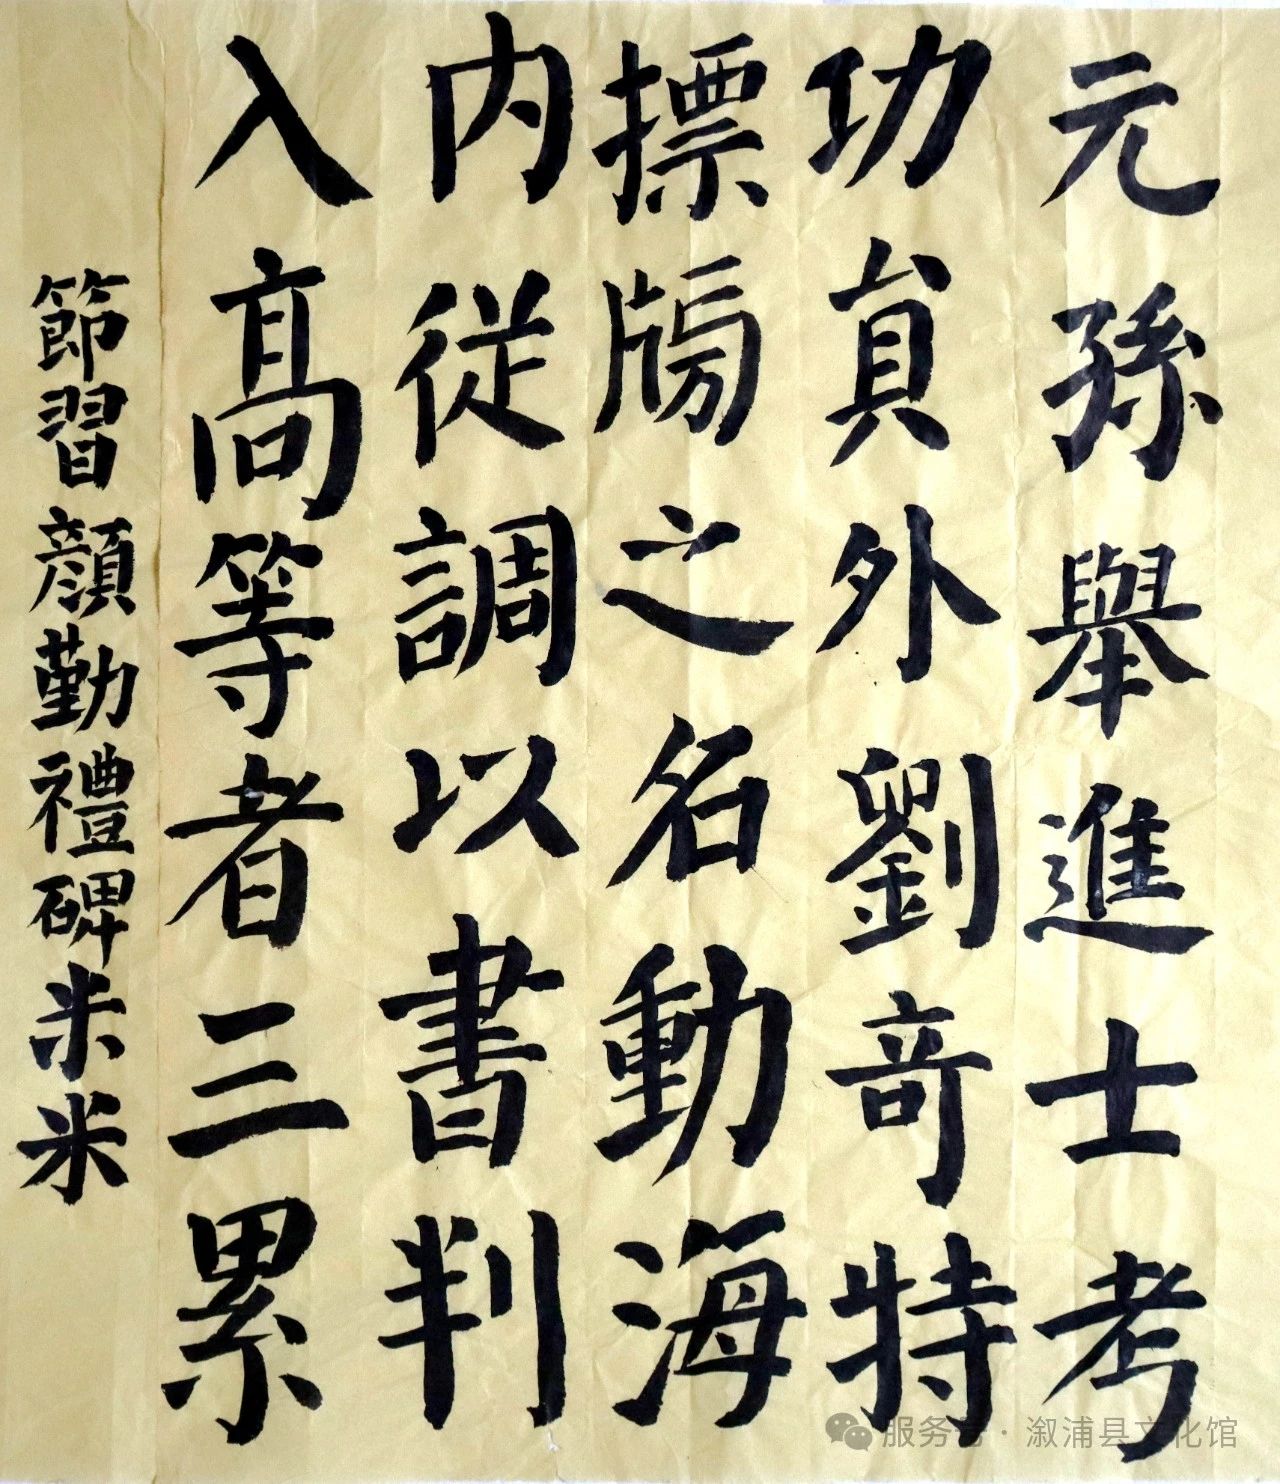 元孫舉進士考
功員外劉竒特
摽牓之名動海
内従調以書判
入高等者三累
節習顔勤禮碑米米
服务号·溆浦县文化馆